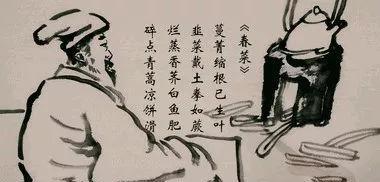 《春菜》
蔓菁缩根已生叶
韭菜戴土拳如蕨
烂蒸香荠白鱼肥
碎点青蒿凉饼滑